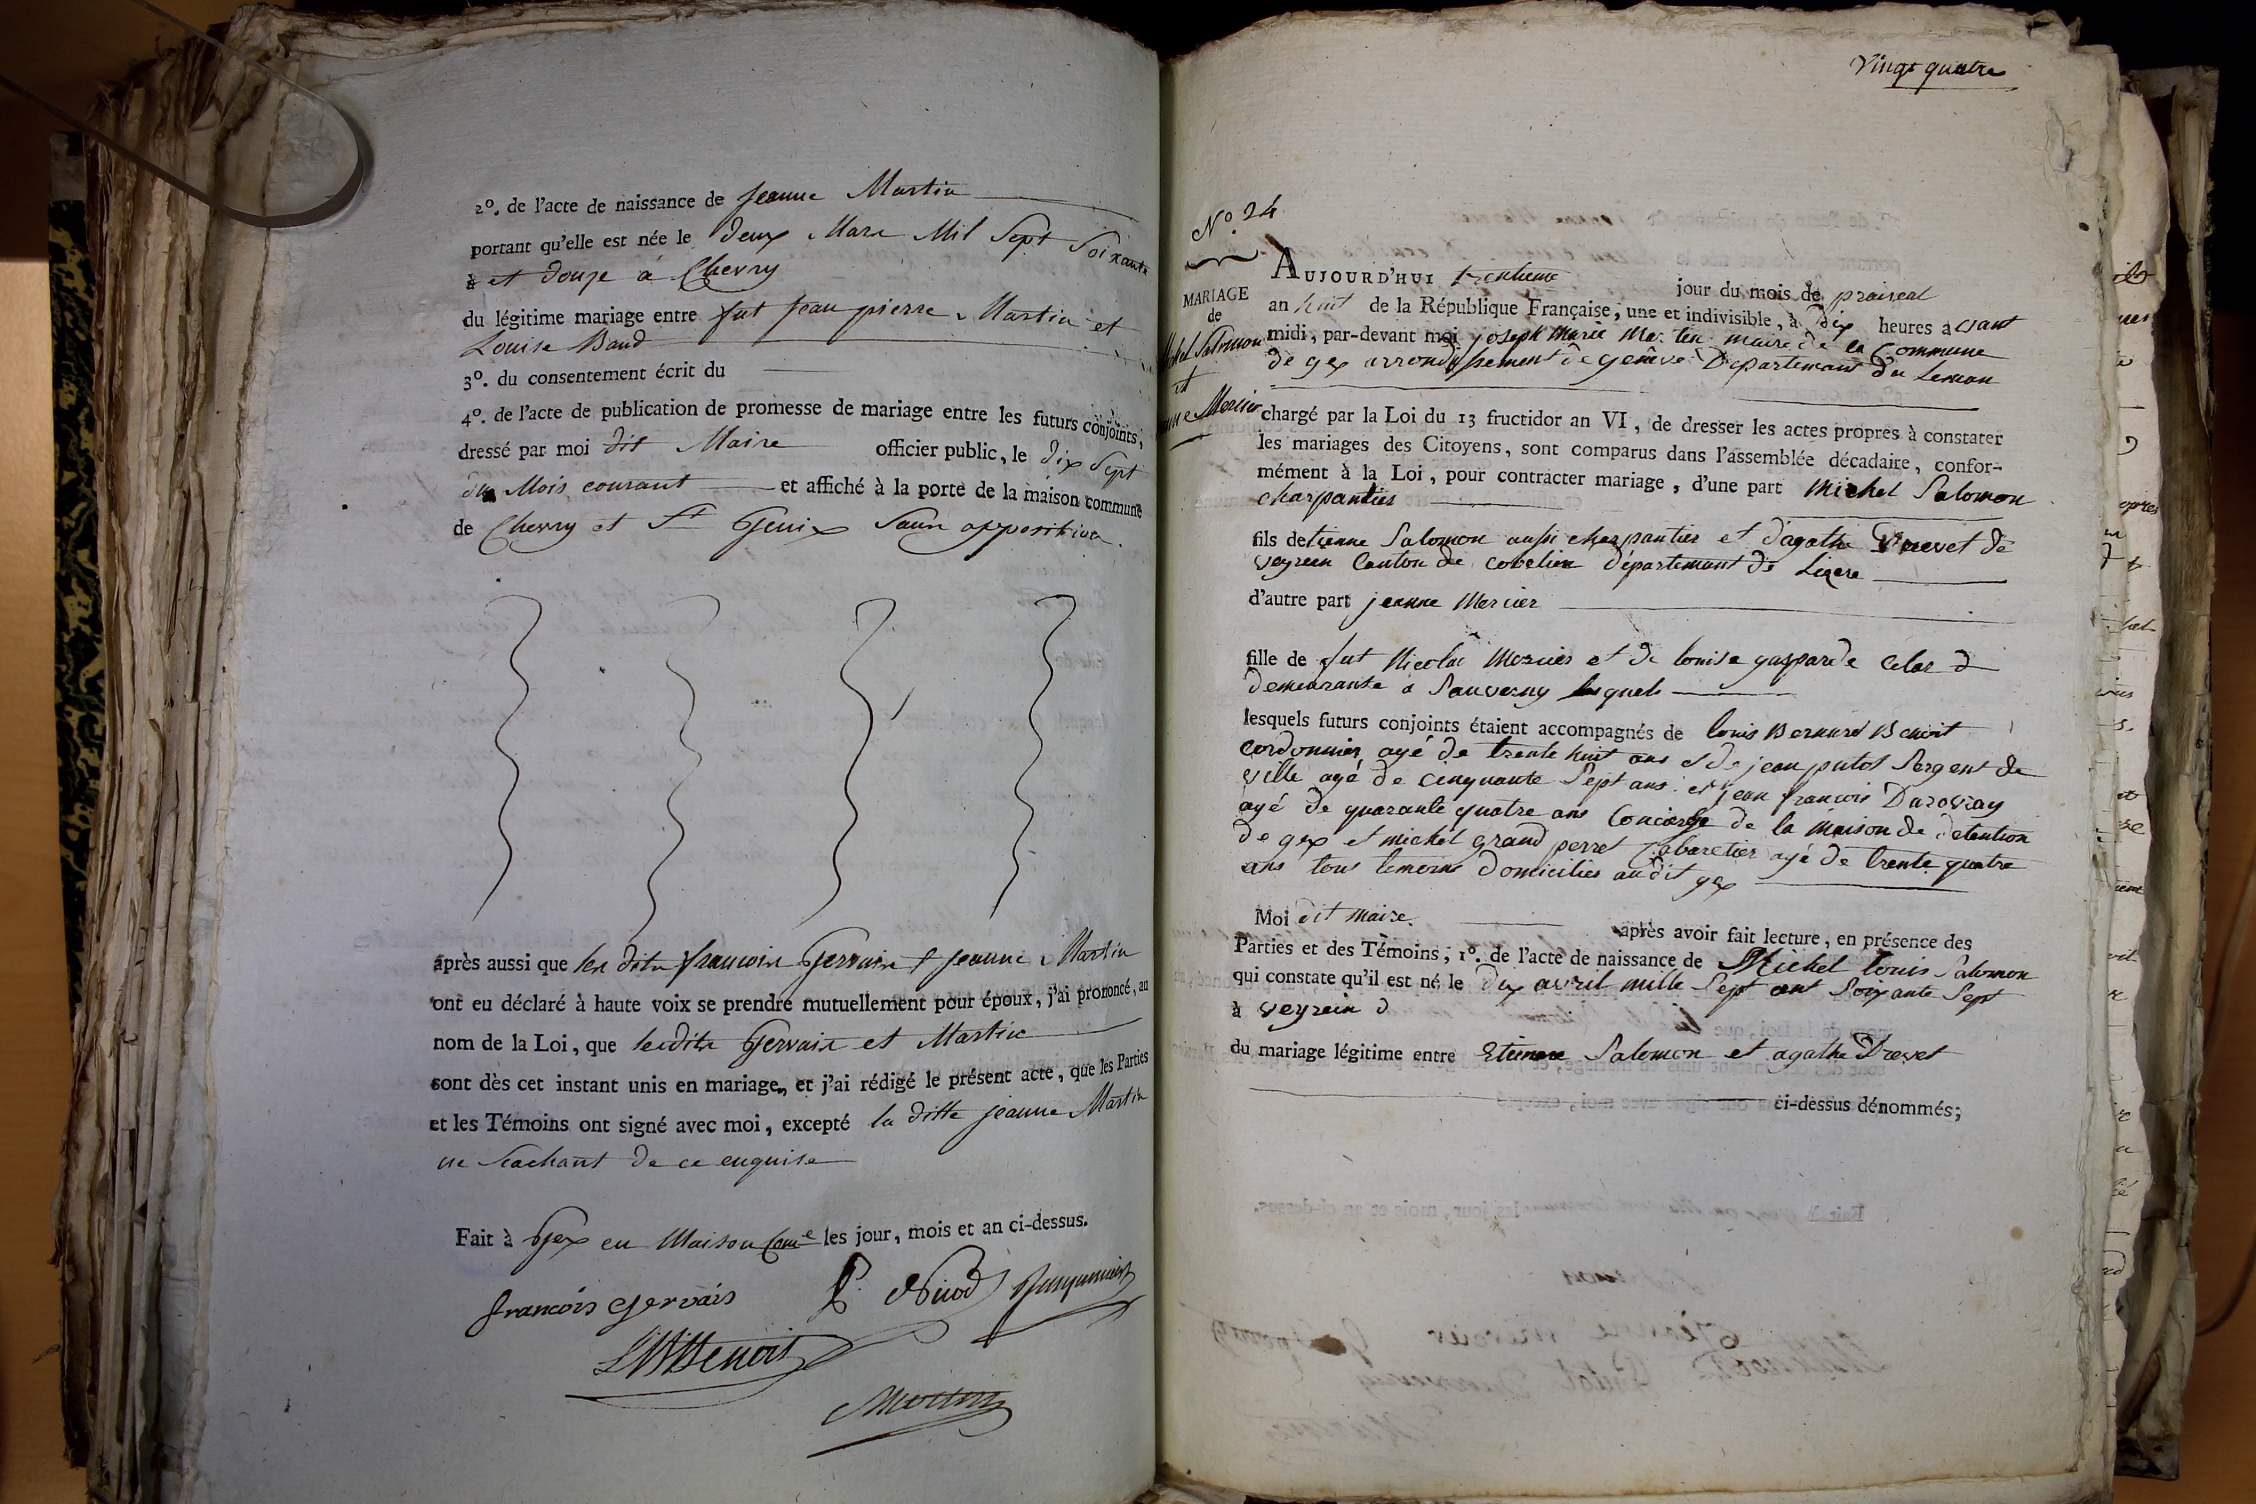 2º. de l'acte de naissance de jeanne Martin
portant qu'elle est née le deux Mars Mil Sept Soixante
à et douze à Chevry
du légitime mariage entre fut jean pierre Martin et
Louise Baud
3º. du consentement écrit du
4º. de l'acte de publication de promesse de mariage entre les futurs conjoints,
dressé par moi dit Maire officier public, le dix Sept
du Mois courant et affiché à la porte de la maison commune
de Chevry et St Genix Sans opposition.
après aussi que les dits francois Gervais & jeanne Martin
ont eu déclaré à haute voix se prendre mutuellement pour époux, j'ai prononcé, au
nom de la Loi, que lesdits Gervais et Martin
sont dès cet instant unis en mariage, et j'ai rédigé le présent acte, que les Parties
et les Témoins ont signé avec moi, excepté la ditte jeanne Martin
ne Scachant de ce enquise
Fait à Gex en Maison Come les jour, mois et an ci-dessus.
francois Gervais P. Nicod
LBBenoit
Martin
Vingt quatre
Nº. 24
MARIAGE
de
Michel Salomon
et
jeanne Mercier
AUJOURD'HUI trentieme jour du mois de praireal
an huit de la République Française, une et indivisible, à dix heures avant
midi, par-devant moi joseph Marie Martin maire de la Commune
de gex arrondissement de genève Departemant du Leman
chargé par la Loi du 13 fructidor an VI, de dresser les actes propres à constater
les mariages des Citoyens, sont comparus dans l'assemblée décadaire, confor-
mément à la Loi, pour contracter mariage, d'une part Michel Salomon
charpantier
fils detienne Salomon aussi charpantier et d'agathe Drevet de
veyrein Canton de covelieu departemant de Lizere
d'autre part jeanne Mercier
fille de fut Nicolas Mercier et de louise gasparde
demeurante a Sauverny lesquels
lesquels futurs conjoints étaient accompagnés de louis Bernard Benoit
cordonnier agé de trente huit ans & de jean putod Sergent de
ville agé de cinquante Sept ans et jean francois Darovray
agé de quarante quatre ans Concierge de la Maison de detention
de gex et michel grand perret Cabaretier agé de trente quatre
ans tous temoins domicilies audit gex
Moi dit maire. après avoir fait lecture, en présence des
Parties et des Témoins; 1º. de l'acte de naissance de Michel louis Salomon
qui constate qu'il est né le dix avril mille Sept cent Soixante Sept
à veyrein d
du mariage légitime entre Etienne Salomon et agathe Drevet
ci-dessus dénommés;